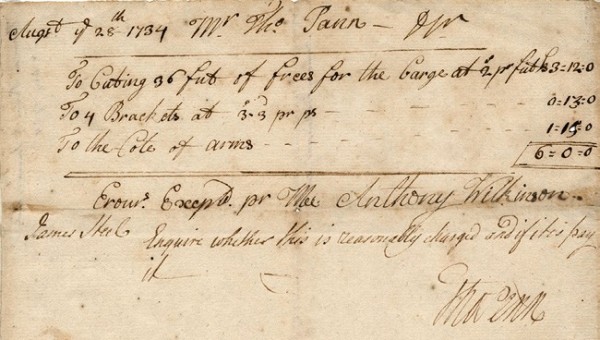 Augst ye 28th 1734 Mr Tho Pann - Dr
To Cuting 36 fut of frees for the barge at 2s pr fut £3=12=0
To 4 Brackets at 3s-3d pr ps - - - - - 0=13=0
To the Cote of arms - - - - - - 1=15=0
6=0=0
Erours Excepd pr Mee Anthony Wilkinson
James Steel
Enquire whether this is reasonably charged and if it is pay
it
Tho Penn